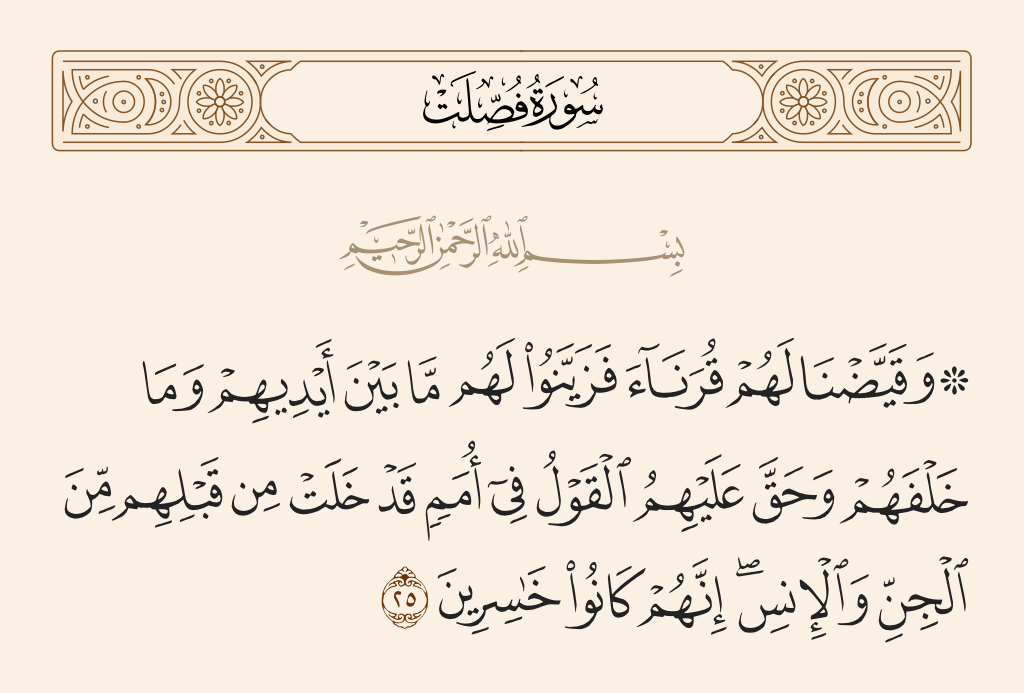 سُورَةُ فُصِّلَتْ
بِسْمِ ٱللَّهِ ٱلرَّحْمَٰنِ ٱلرَّحِيمِ
۞ وَقَيَّضْنَا لَهُمْ قُرَنَآءَ فَزَيَّنُوا۟ لَهُم مَّا بَيْنَ أَيْدِيهِمْ وَمَا
خَلْفَهُمْ وَحَقَّ عَلَيْهِمُ ٱلْقَوْلُ فِىٓ أُمَمٍ قَدْ خَلَتْ مِن قَبْلِهِم مِّنَ
ٱلْجِنِّ وَٱلْإِنسِ ۖ إِنَّهُمْ كَانُوا۟ خَـٰسِرِينَ ٢٥